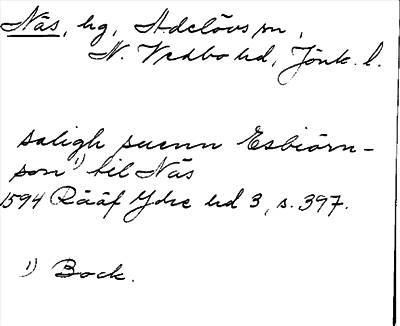 Näs, hg, Adelövs sn,
N. Vedbo hd, Jönk. l.
saligh suenn Esbiörn-
son 1) til Näs
1594 Rääf Ydre hd 3, s. 397.
1) Bock.